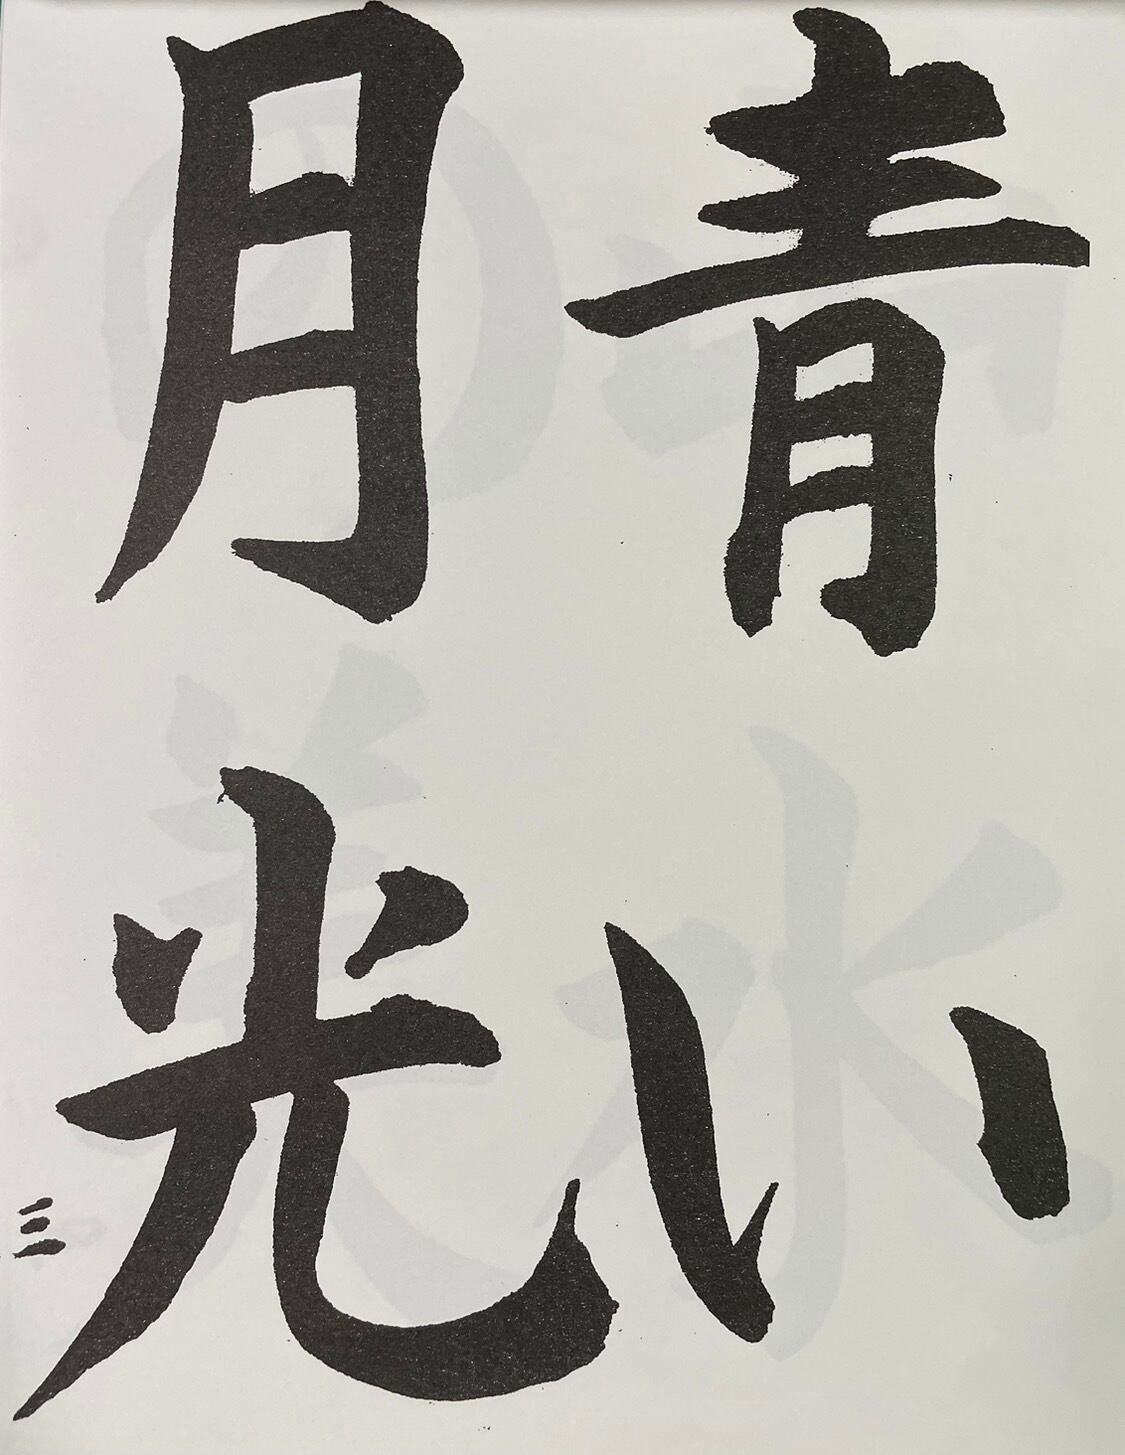 青い
月光
三